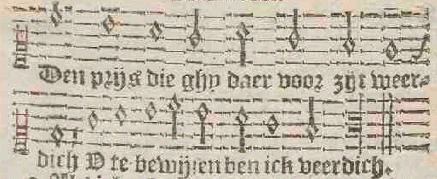 Den prijs die ghy daer voor zijt weer-
dich V te bewijsen ben ick veerdich.